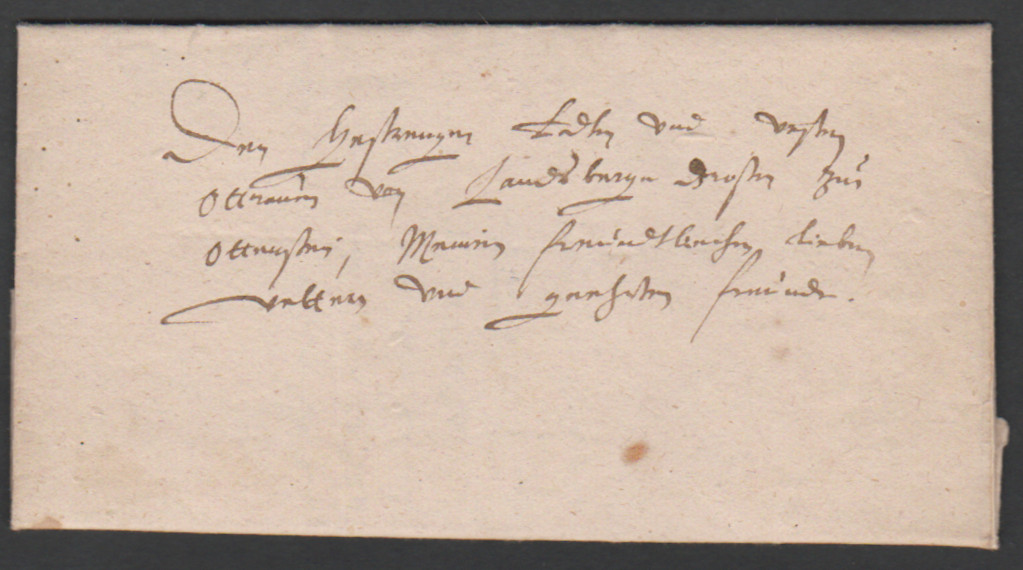 Den Gestrengen Edlen und vesten
von Landsberge Drosten zur
Ottenstein, Meinen freundtlichen lieben
vettern und geehrten freunde.